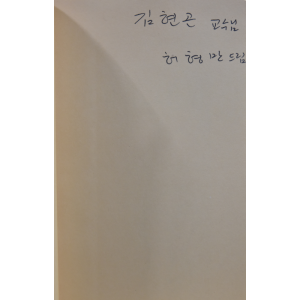 김현곤 교수님
허형만 드림